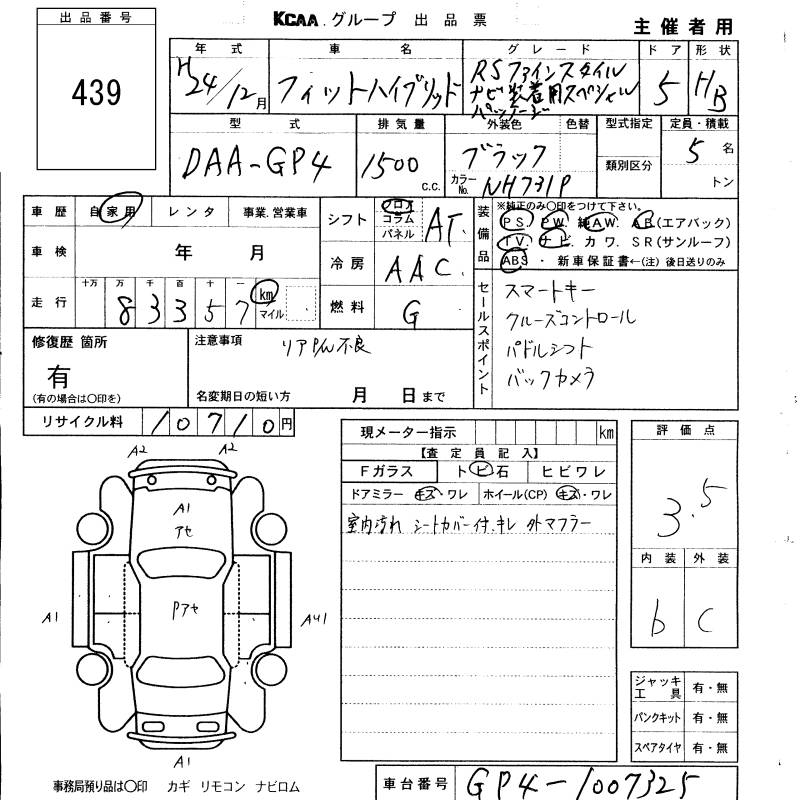 出品番号
439
KCAA グループ 出品票
主催者用
年式 車名 グレード ドア 形状
H24/12月 フィットハイブリッド RSファインスタイル
ナビ装着用スペシャル
パッケージ
5 HB
型式 排気量 外装色 色替 型式指定 定員・積載
DAA-GP4 1500 C.C. ブラック 5名
カラーNo. NH731P 類別区分 トン
車歴 自家用 レンタ 事業.営業車
車検 年 月
十万 万 千 百 十 一
走行 8 3 3 5 7 km マイル
シフト フロア コラム パネル AT
冷房 AAC
燃料 G
装備品
※純正のみ○印をつけて下さい。
PS. PW. 純AW. AB(エアバック)
TV. ナビ. カワ. SR(サンルーフ)
ABS ・ 新車保証書←(注) 後日送りのみ
セールスポイント
スマートキー
クルーズコントロール
パドルシフト
バックカメラ
修復歴 箇所
有
(有の場合は○印を)
注意事項
リアP/W不良
名変期日の短い方 月 日まで
リサイクル料 10710円
現メーター指示 km
【査定員記入】
Fガラス トビ石 ヒビワレ
ドアミラー キズ・ワレ ホイール(CP) キズ・ワレ
室内汚れ シートカバー付.キレ 外マフラー
評価点
3.5
内装 外装
b C
A2 A2
A1
アセ
Pアセ
A1 AU1
A1
ジャッキ工具 有・無
パンクキット 有・無
スペアタイヤ 有・無
事務局預り品は○印 カギ リモコン ナビロム
車台番号 GP4-1007325